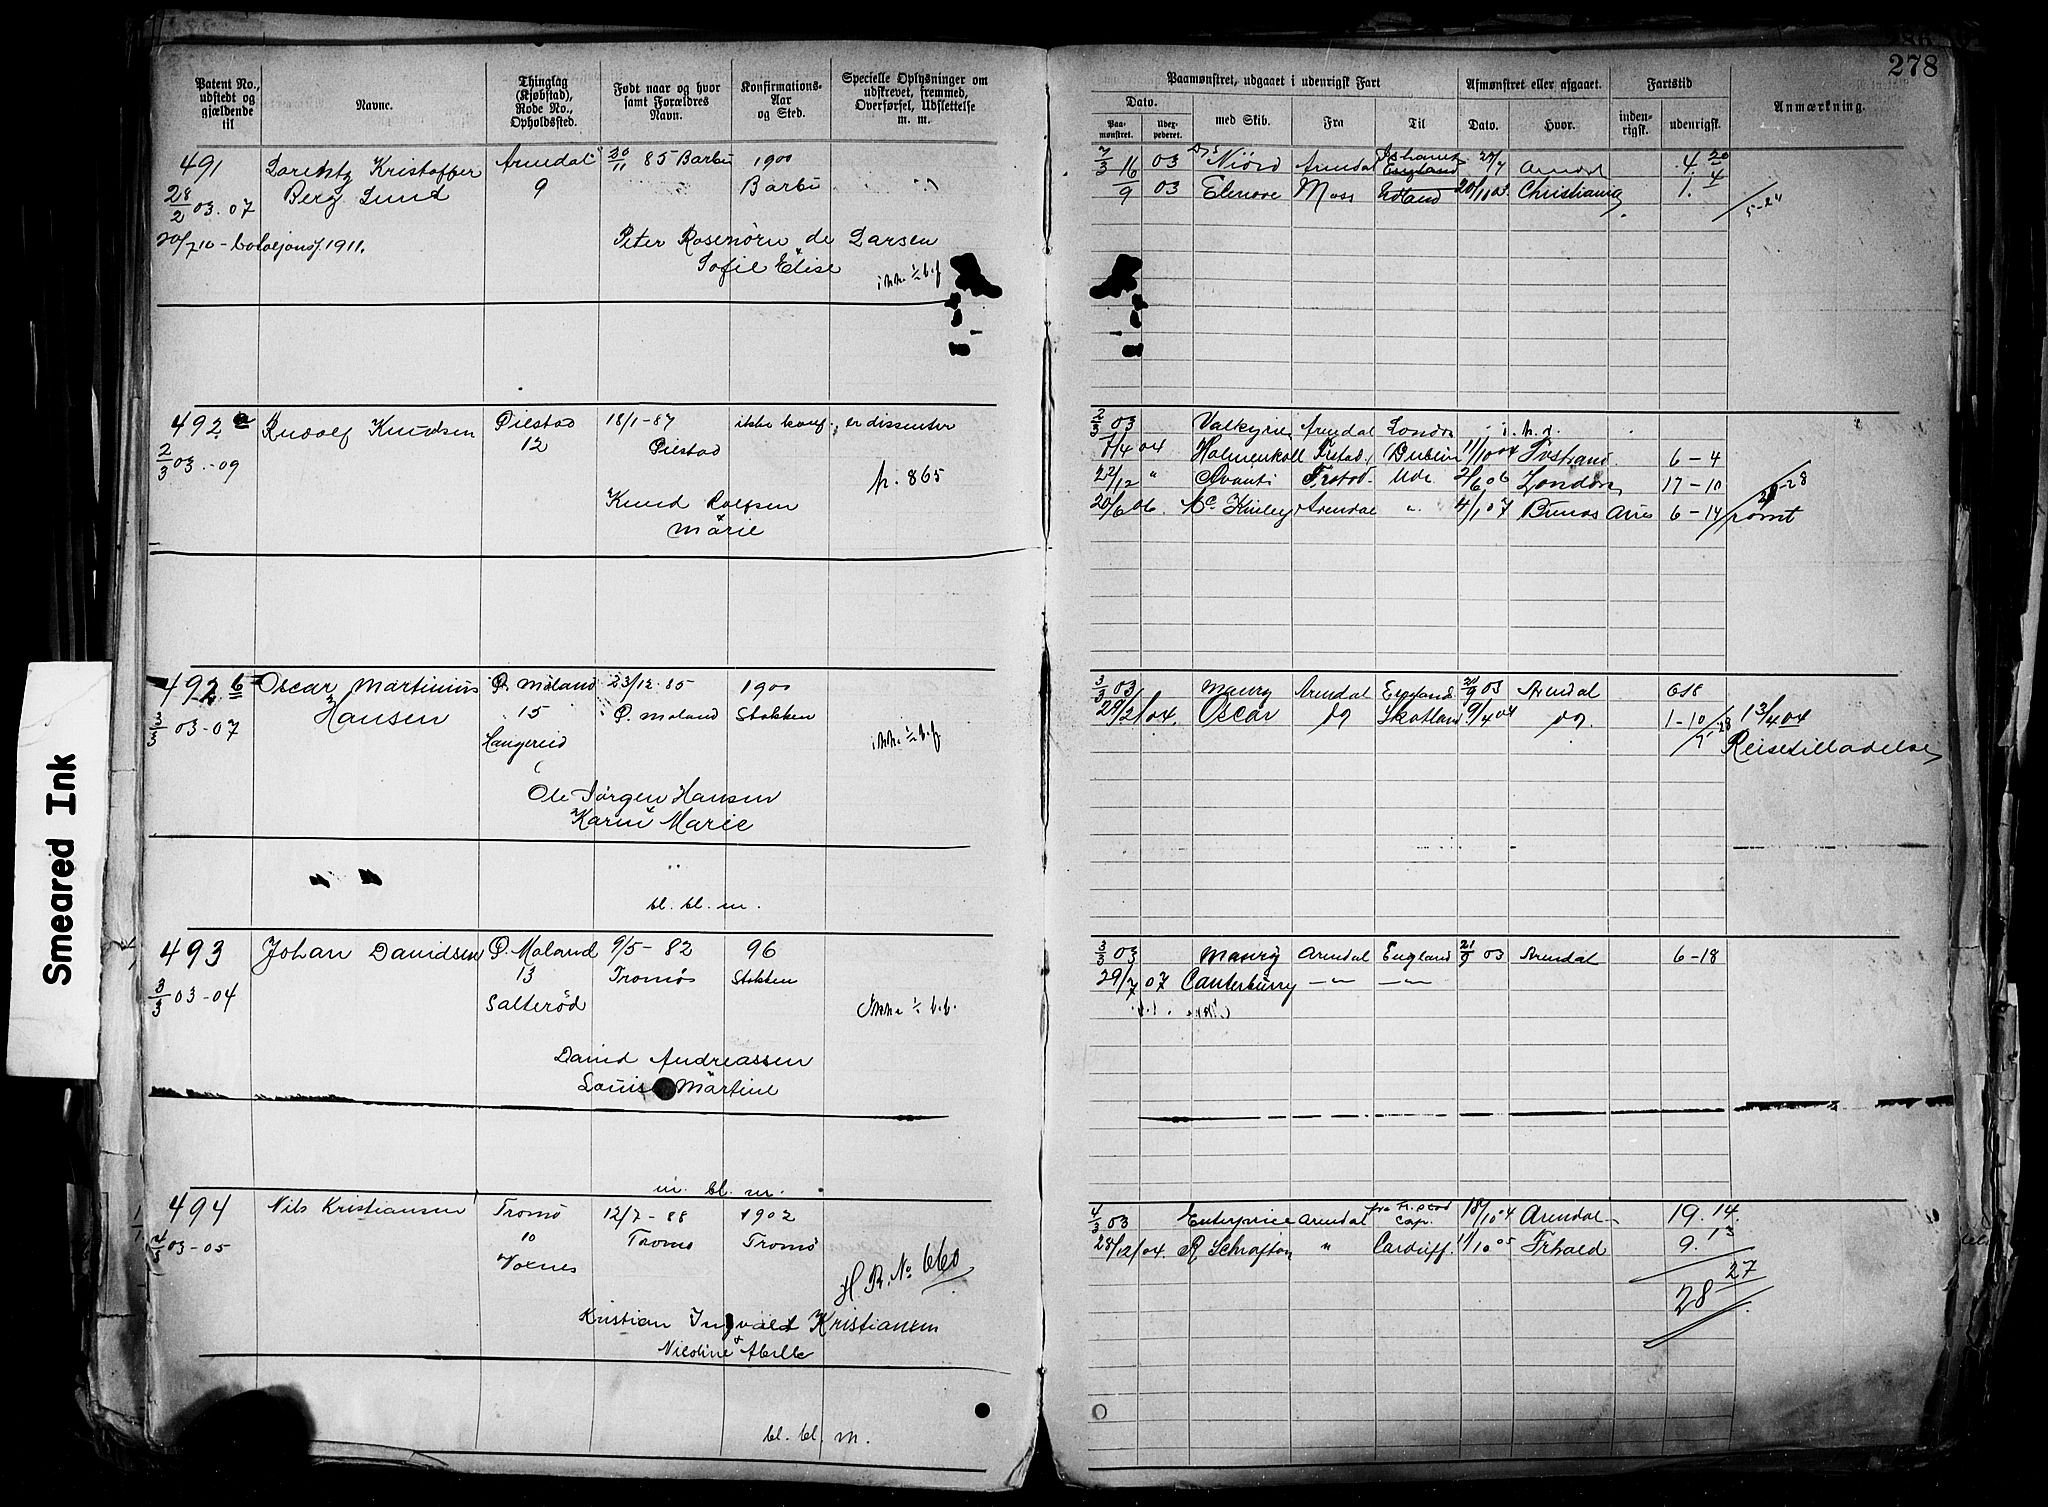 278
Patent No., udstedt og gjældende til
Navne.
Thinglag (Kjøbstad), Rode No., Opholdssted.
Født naar og hvor samt Forældres Navn.
Konfirmations-Aar og Sted.
Specielle Oplysninger om udskrevet, fremmed, Overførsel, Udslettelse m. m.
Paamønstret, udgaaet i udenrigsk Fart
Afmønstret eller afgaaet.
Fartstid
Anmærkning.
Dato.
Paamønstret.
Udexpederet.
med Skib.
Fra
Til
Dato.
Hvor.
indenrigsk.
udenrigsk.
491 Lorentz Kristoffer Arendal 20/11 85 Barbu 1900
Berg Lund 9 Barbu
28/2 03.07
Peter Rosenørn de Larsen
Sofie Elise
ikke 1/2 b.f
16/3 03 D/S Niörd Arendal England 27/7 Arendal 4. 20
7/9 03 Ellenore Moss 20/11 03 Christiania 1. 4
492 a Rudolf Knudsen Øiestad 18/1-87 ikke konf., er dissenter
12 Øiestad
2/3 03.-09
h. 865
Knud Rolfsen
Marie
2/3 03 Valkyrie Arendal London i. h. d.
7/4 04 Holmenkoll Frstad. Dublin 11/10 04 6-4
22/12 " Avanti Frstad. Ude 2/6 06 London 17-10
20/6 06. Mc Kinley Arendal " 4/1 07 Buenos Aires 6-14 rømt
492 b Oscar Martinius Ø. Moland 23/12-85 1900
Hansen 15 Ø. Moland Stokken
3/3 03-07 Haugereid
ikke 1/2 b.f
Ole Jørgen Hansen
Karen Marie
bl. bl. m.
3/3 03 Maury Arendal England 21/9 03 Arendal 6 18
29/2 04. Oscar dg Skotland 9/4 04 dg. 1-10 13/4 04
Reisetilladelse
493 Johan Davidsen Ø. Moland 9/5-82 96
13 Tromøs Stokken
3/3 03-04 Salterød
Ikke 1/2 b.b.
David Andreassen
Louise Martine
m. bl. m.
3/3 03 Maury Arendal England 21/9 03 Arendal 6-18
29/7 07 Canterburry -"- -"-
494 Nils Kristiansen Tromø 12/7-88 1902
10 Tromø Tromø
4/3 03-05
H. R. No 660
Kristian Ingvald Kristiansen
Nicoline
bl. bl. m.
4/3 03 Enterprise Arendal Cap. 18/10 04 Arendal 19. 14.
28/12 04. R Schrafton " Cardiff. 11/10 05 Frhald 9. 13
28 27
Smeared Ink